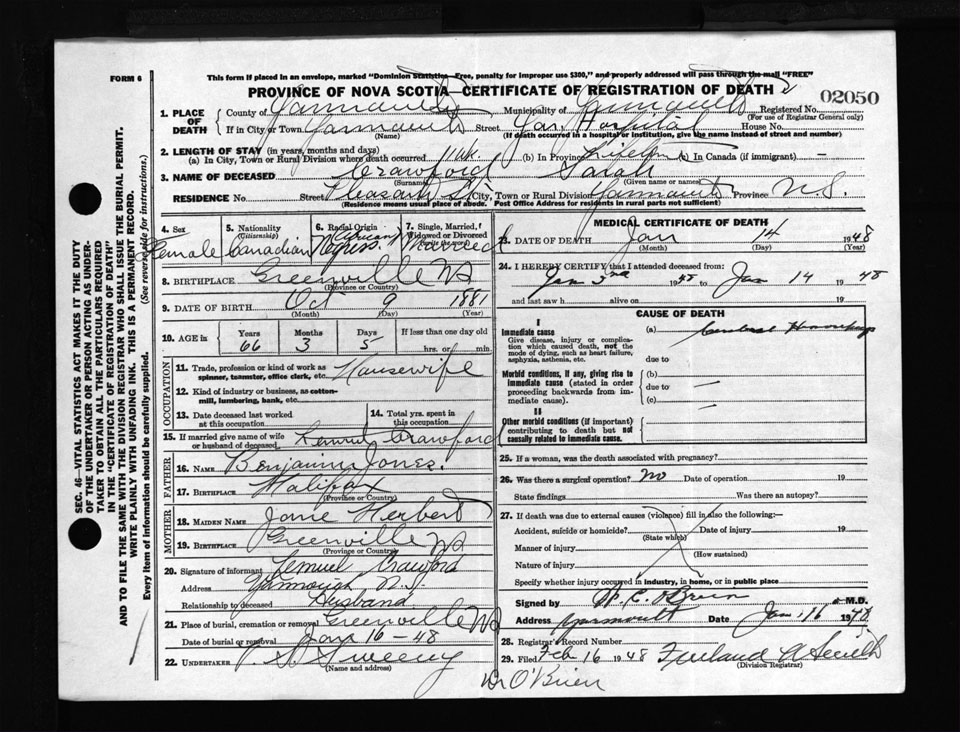 FORM 6
This form if placed in an envelope, marked "Dominion Statistics—Free, penalty for improper use $300," and properly addressed will pass through the mail "FREE"
PROVINCE OF NOVA SCOTIA—CERTIFICATE OF REGISTRATION OF DEATH
02050
1. PLACE OF DEATH
County of Yarmouth Municipality of Yarmouth Registered No.
(For use of Registrar General only)
If in City or Town Yarmouth Street Yar. Hospital House No.
(Name) (If death occurred in a hospital or institution, give the name instead of street and number)
2. LENGTH OF STAY (in years, months and days)
(a) In City, Town or Rural Division where death occurred 1 wk (b) In Province Lifetime (c) In Canada (if immigrant) —
3. NAME OF DECEASED Crawford Sarah
(Surname) (Given name or names)
RESIDENCE No. Street Pleasant St. City, Town or Rural Division Yarmouth Province N.S.
(Residence means usual place of abode. Post Office Address for residents in rural parts not sufficient)
4. Sex Female
5. Nationality (Citizenship) Canadian
6. Racial Origin Negress
7. Single, Married, Widowed or Divorced (write the word) Married
8. BIRTHPLACE Greenville NS
(Province or Country)
9. DATE OF BIRTH Oct 9 1881
(Month) (Day) (Year)
10. AGE in Years 66 Months 3 Days 5 If less than one day old hrs. or min.
OCCUPATION
11. Trade, profession or kind of work as spinner, teamster, office clerk, etc. Housewife
12. Kind of industry or business, as cotton-mill, lumbering, bank, etc.
13. Date deceased last worked at this occupation
14. Total yrs. spent in this occupation
15. If married give name of wife or husband of deceased Lemuel Crawford
FATHER
16. NAME Benjamin Jones.
17. BIRTHPLACE Halifax
(Province or Country)
MOTHER
18. MAIDEN NAME Jane Herbert
19. BIRTHPLACE Greenville NS
(Province or Country)
20. Signature of informant Lemuel Crawford
Address Yarmouth N.S.
Relationship to deceased Husband
21. Place of burial, cremation or removal Greenville NS
Date of burial or removal Jan 16-48
22. UNDERTAKER Sweeny
(Name and address)
MEDICAL CERTIFICATE OF DEATH
23. DATE OF DEATH Jan 14 1948
(Month) (Day) (Year)
24. I HEREBY CERTIFY that I attended deceased from:
Jan 3rd 1948 to Jan 14 1948
and last saw h alive on 19
CAUSE OF DEATH
I
Immediate cause
Give disease, injury or complication which caused death, not the mode of dying, such as heart failure, asphyxia, asthenia, etc.
(a) Cerebral Hemorrhage
due to
Morbid conditions, if any, giving rise to immediate cause (stated in order proceeding backwards from immediate cause).
(b) —
due to
(c) —
II
Other morbid conditions (if important) contributing to death but not causally related to immediate cause.
25. If a woman, was the death associated with pregnancy?
26. Was there a surgical operation? No Date of operation 19
State findings Was there an autopsy?
27. If death was due to external causes (violence) fill in also the following:—
Accident, suicide or homicide? Date of injury 19
(State which)
Manner of injury
(How sustained)
Nature of injury
Specify whether injury occurred in industry, in home, or in public place
Signed by W. C. O'Brien M.D.
Address Yarmouth Date Jan 16 1948
28. Registrar's Record Number
29. Filed Feb 16 1948
(Division Registrar)
Dr O'Brien
SEC. 46—VITAL STATISTICS ACT MAKES IT THE DUTY OF THE UNDERTAKER OR PERSON ACTING AS UNDERTAKER TO OBTAIN ALL THE PARTICULARS REQUIRED IN THE "CERTIFICATE OF REGISTRATION OF DEATH" AND TO FILE THE SAME WITH THE DIVISION REGISTRAR WHO SHALL ISSUE THE BURIAL PERMIT.
WRITE PLAINLY WITH UNFADING INK. THIS IS A PERMANENT RECORD.
Every item of information should be carefully supplied. (See reverse side for instructions.)